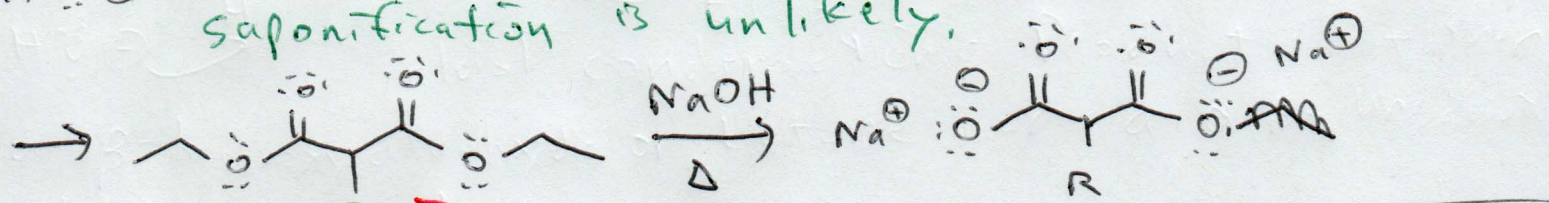 saponification is unlikely.
O O NaOH O O ⊖ Na⊕
→ O O Δ Na⊕ ⊖ O O
R